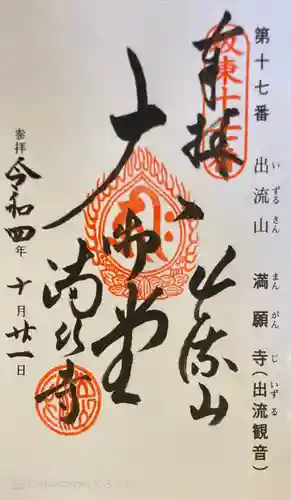 第十七番 出流山 満願寺(出流観音)
いずるさん まんがんじ いずる
坂東十七番
奉拝
出流山
大御堂
満願寺
参拝 令和四年 十月廿一日